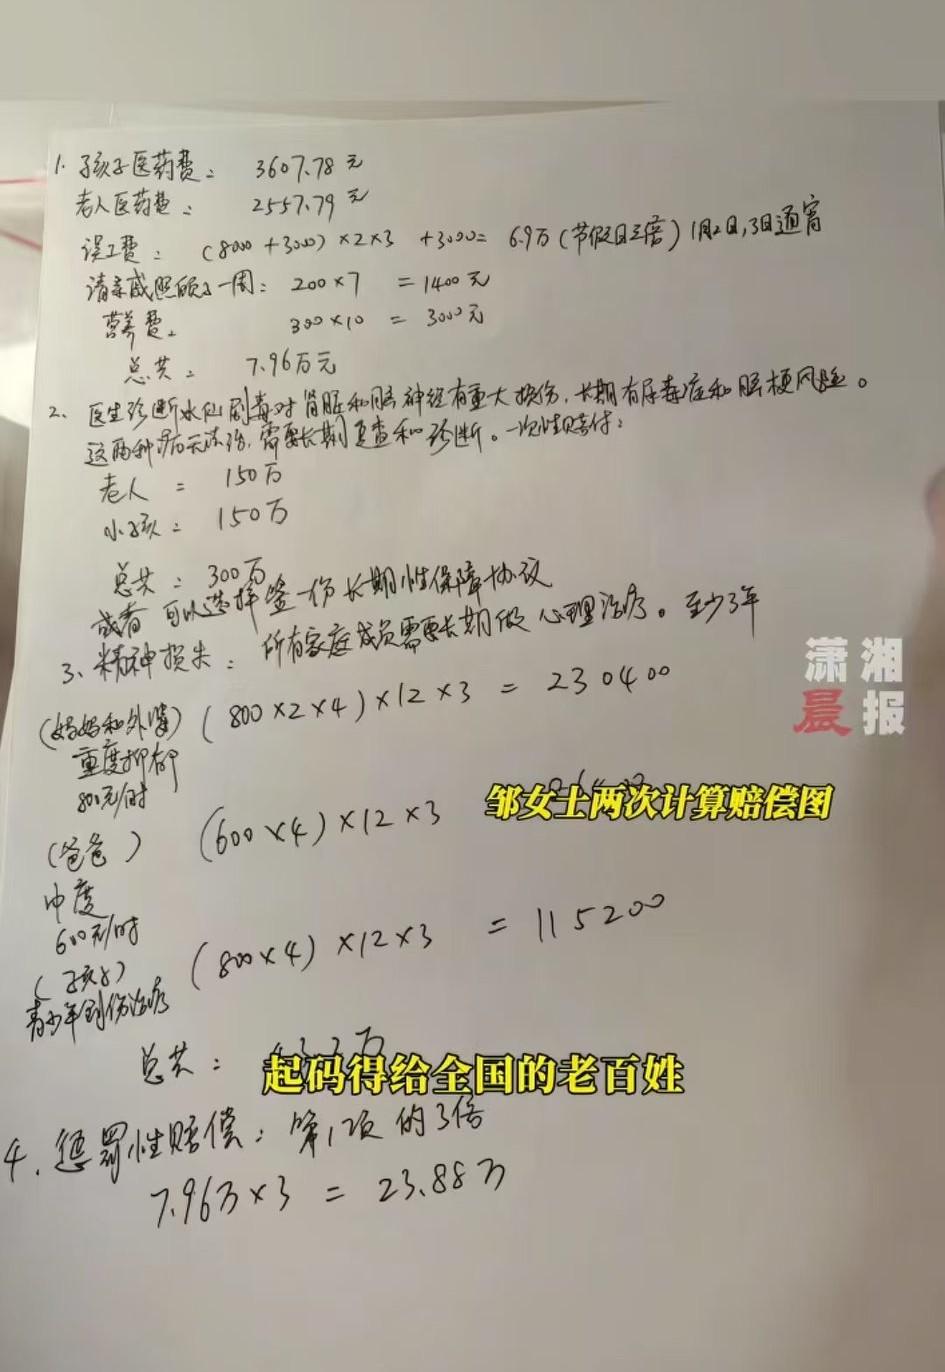 1. 孩子医药费： 3607.78元
老人医药费： 2557.79元
误工费： (8000+3000)×2×3 +3000= 6.9万(节假日三倍) 1月2日,3日通宵
请亲戚照顾 一周： 200×7 = 1400元
营养费： 300×10 = 3000元
总共： 7.96万元
2、医生诊断水仙剧毒对肾脏和脑神经有重大损伤，长期有尿毒症和脑梗风险。
这两种病无法治，需要长期复查和诊断。一次性赔付：
老人 = 150万
小孩： 150万
总共： 300万
或者可以选择签一份长期性保障协议
3、精神损失： 所有家庭成员需要长期做心理治疗。至少3年
(妈妈和外婆) (800×2×4)×12×3 = 230400
重度抑郁
800元/时
潇湘
晨报
邹女士两次计算赔偿图
(爸爸) (600×4)×12×3
中度
600元/时
(孩子) (800×4)×12×3 = 115200
青少年创伤治疗
总共：
起码得给全国的老百姓
4. 惩罚性赔偿：第1项的3倍
7.96万×3 = 23.88万